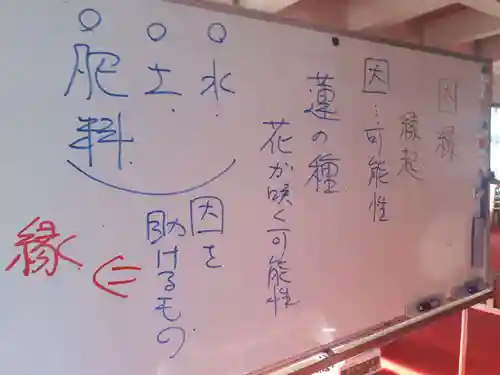 因縁
縁起
因…可能性
蓮の種
花が咲く可能性
水
土
肥料
因を
助けるもの
⇐
縁